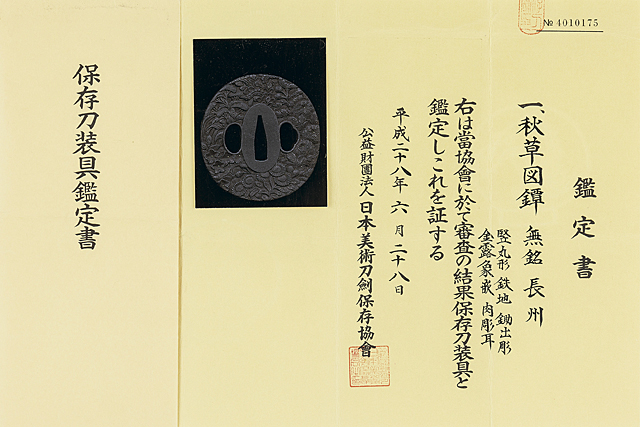 № 4010175
鑑定書
一、秋草図鐔 無銘 長州
竪丸形 鉄地 鋤出彫
金露象嵌 肉彫耳
右は當協會に於て審査の結果保存刀装具と
鑑定しこれを証する
平成二十八年 六月 二十八日
公益財團法人 日本美術刀劍保存協會
保存刀装具鑑定書